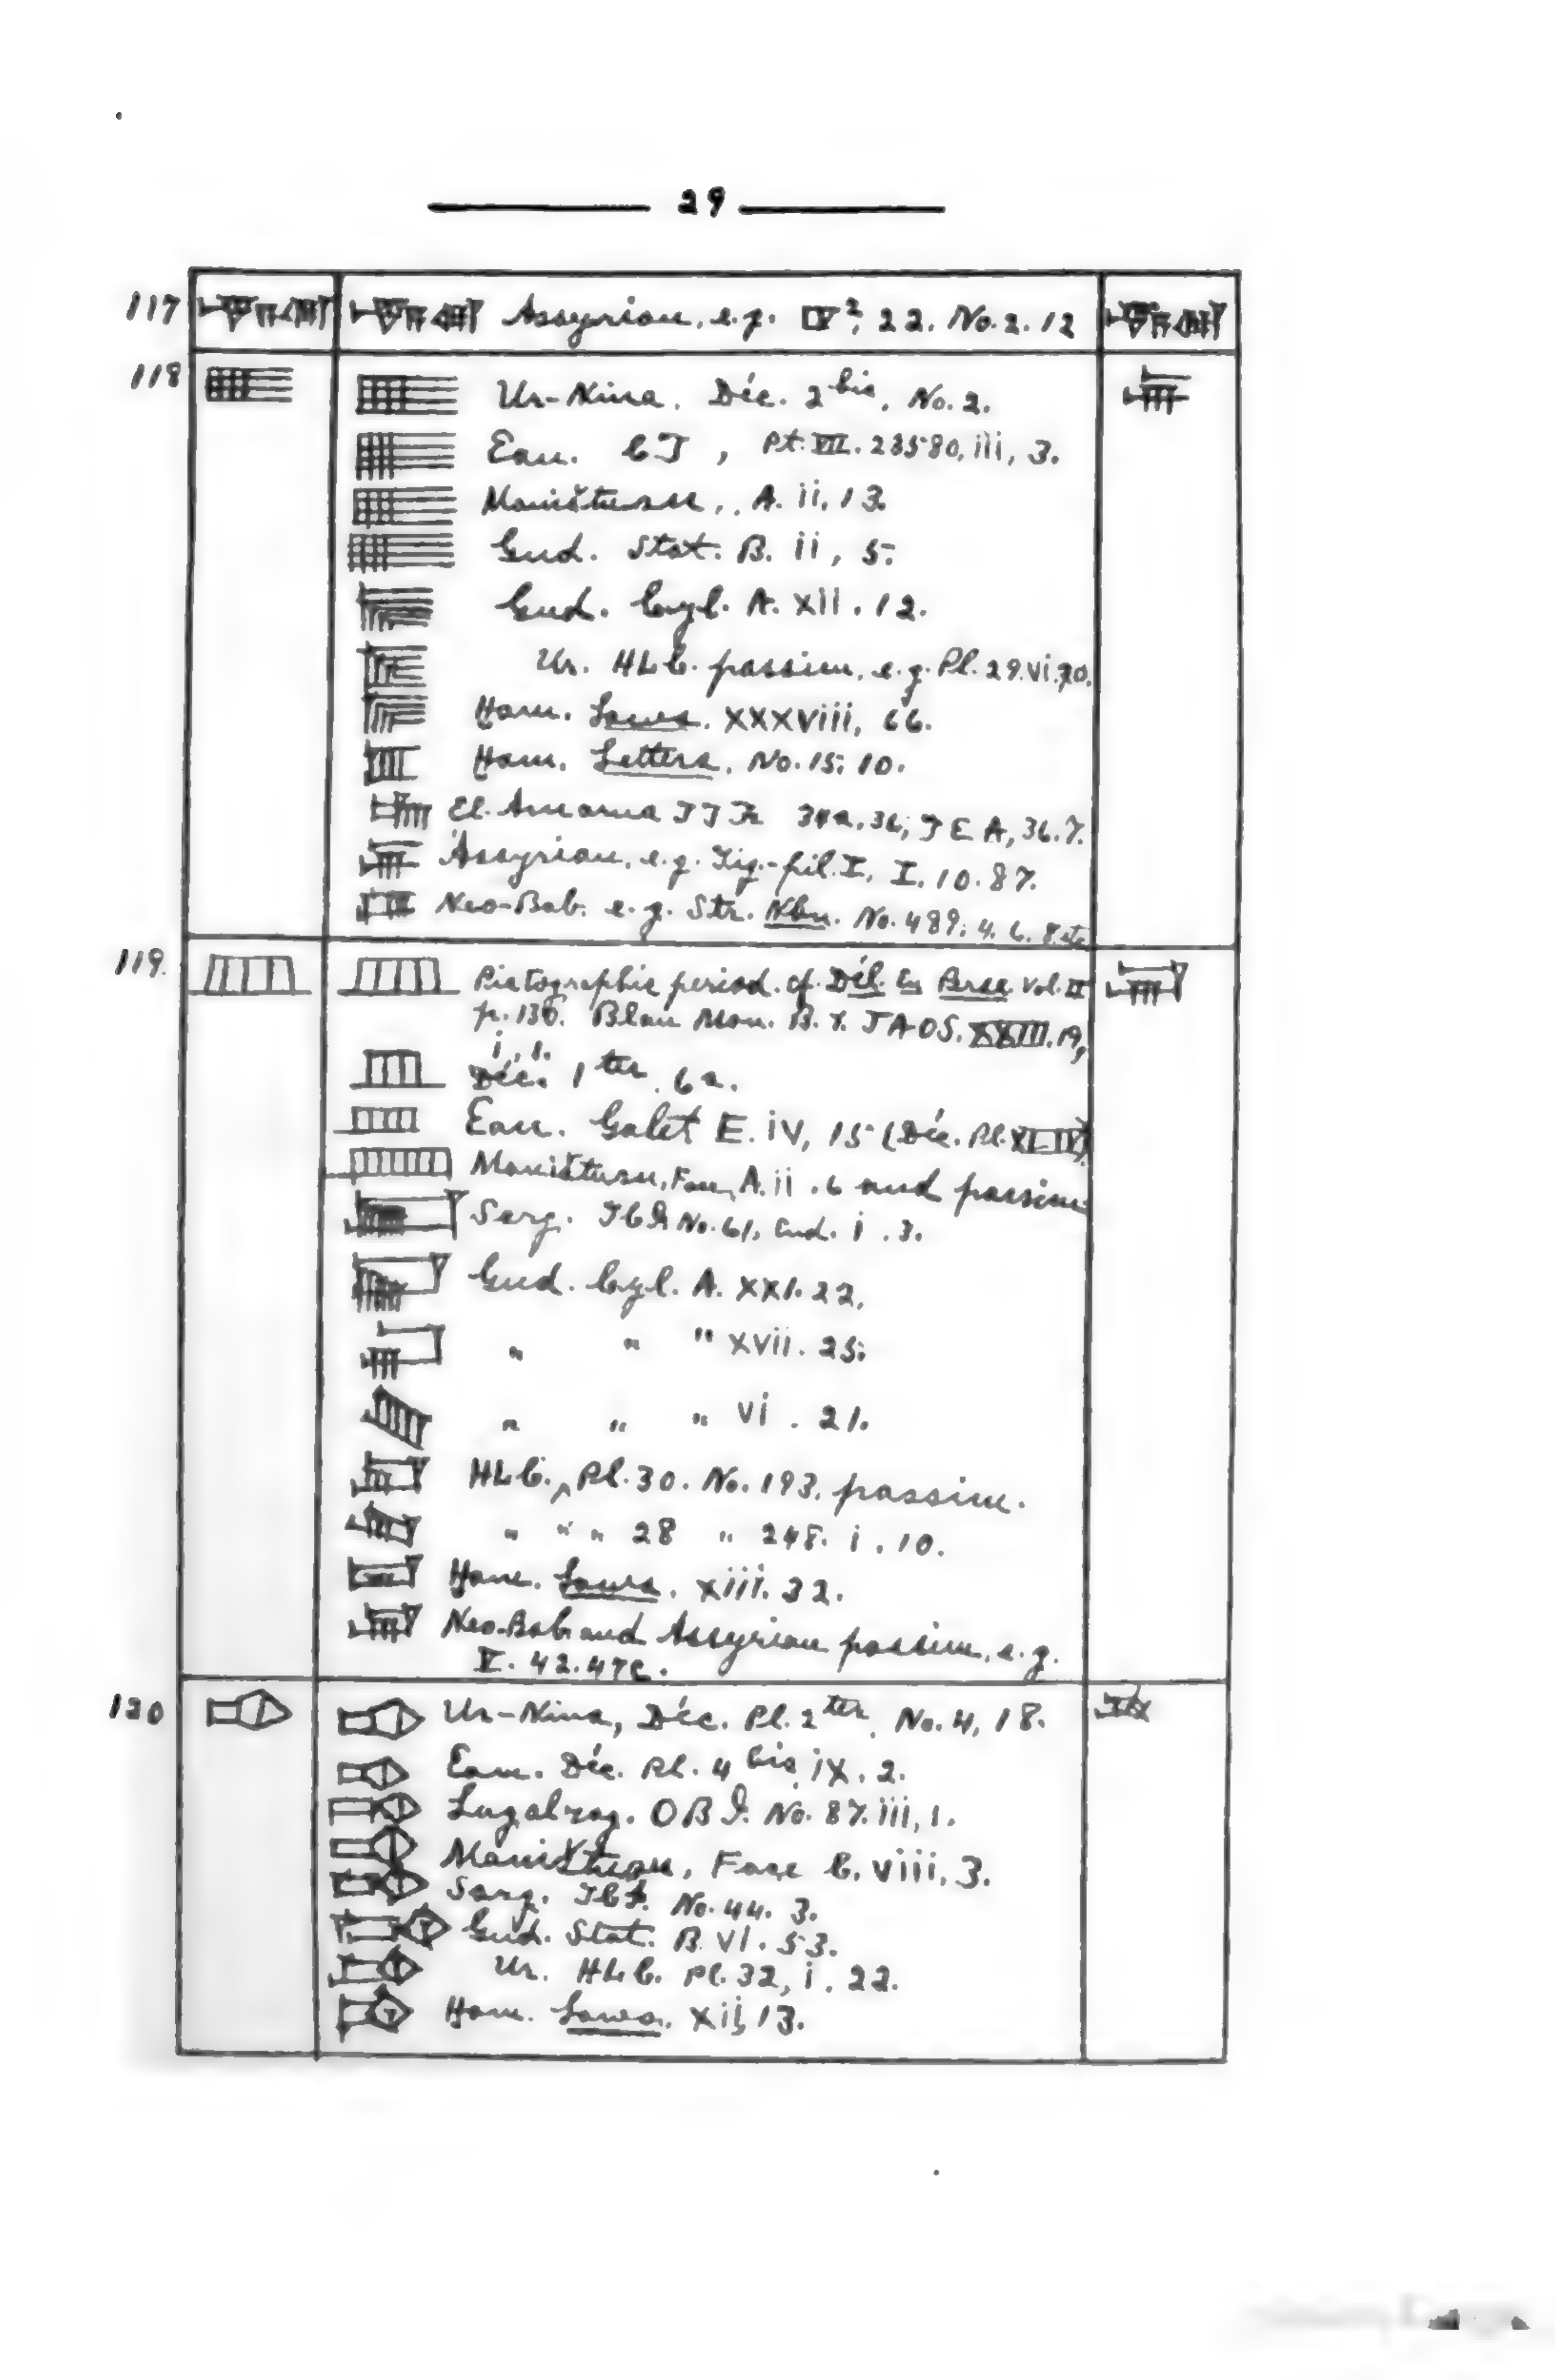 29
117 Assyrian, e.g. IV², 22. No. 2. 12
118 Ur-Nina. Déc. 2bis, No. 2.
Ean. CT, Pt. VII. 23580, iii, 3.
Maništusu, A. ii, 13.
Gud. Stat. B. ii, 5.
Gud. Cyl. A. xii. 12.
Ur. HLC. passim, e.g. Pl. 29. vi.
Ham. Laws. XXXviii, 66.
Ham. Letters, No. 15, 10.
El-Amarna 36, TEA, 36. 7.
Assyrian, e.g. Tig.-pil. I, I. 10. 87.
Neo-Bab. e.g. Str. Nbn. No. 489. 4. 6. 8. etc
119. Pictographic period. cf. Dél. en Perse Vol. II
p. 130. Blau Mon. B. JAOS. XXIII. 19,
i, 1.
Déc. 1ter. 6a.
Ean. Galet E. iv, 15 (Déc. Pl.
Maništusu, Face, A. ii. 6 and passim
Sarg. No. 61, End. i. 3.
Gud. Cyl. A. XXI. 22.
" " " xvii. 25.
" " " vi. 21.
HLC., Pl. 30. No. 193, passim.
" " " 28 " 248. i. 10.
Ham. Laws. xiii. 32.
Neo-Bab. and Assyrian passim, e.g.
V. 42. 47c.
120 Ur-Nina, Déc. Pl. 2ter. No. 4, 18.
Ean. Déc. Pl. 4bis ix. 2.
Lugalzag. OBI. No. 87. iii, 1.
Maništusu, Face C. viii, 3.
Sarg. No. 44. 3.
Gud. Stat. B. VI. 53.
Ur. HLC. Pl. 32, i. 22.
Ham. Laws. xii, 13.